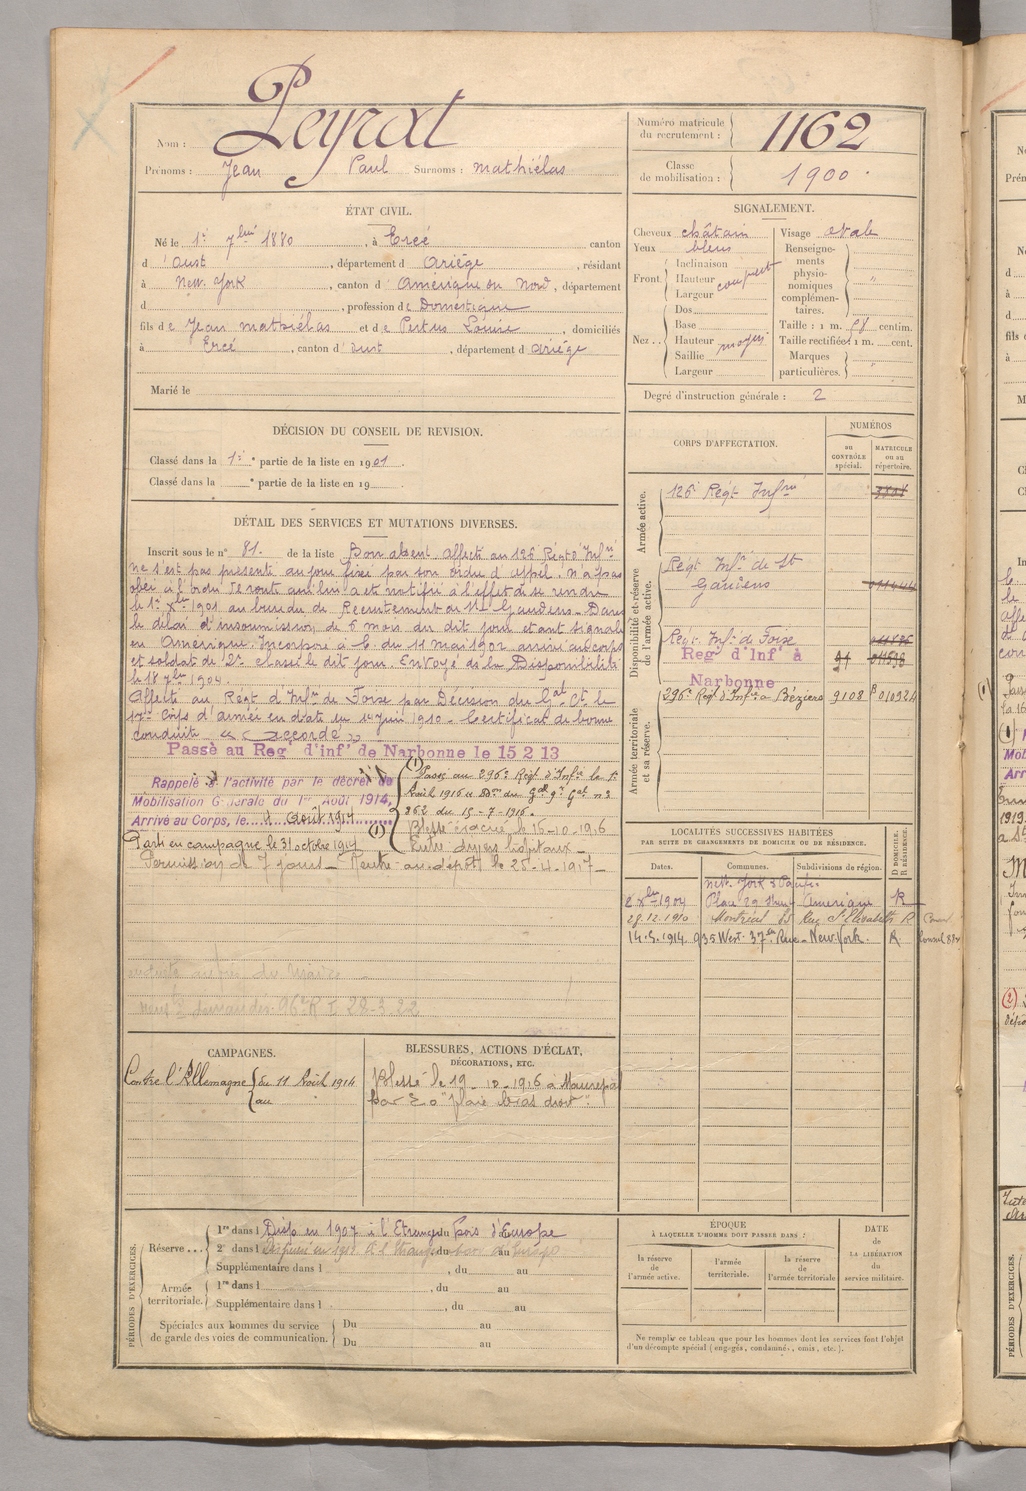 Nom : Peyrat
Prénoms : Jean Paul Surnoms : mathiélas
Numéro matricule du recrutement : 1162
Classe de mobilisation : 1900
ÉTAT CIVIL.
Né le 1er 7bre 1880, à Ercé canton
d'Oust, département d Ariége, résidant
à New. York, canton d'Amérique du Nord, département
d , profession de Domestique
fils de Jean mathiélas et de Pertus Louise, domiciliés
à Ercé, canton d'Oust, département d Ariége
Marié le
SIGNALEMENT.
Cheveux châtain
Yeux bleus
Front. Inclinaison
Hauteur
Largeur
Nez.. Dos
Base
Hauteur moyen
Saillie
Largeur
Visage ovale
Renseignements physionomiques complémentaires. "
Taille : 1 m. 58 centim.
Taille rectifiée : 1 m. cent.
Marques particulières. "
Degré d'instruction générale : 2
DÉCISION DU CONSEIL DE REVISION.
Classé dans la 1re partie de la liste en 1901.
Classé dans la e partie de la liste en 19
DÉTAIL DES SERVICES ET MUTATIONS DIVERSES.
Inscrit sous le n° 81. de la liste Bon absent affecté au 126 Régt d'Infrie
ne s'est pas présenté au jour fixé par son ordre d'appel, n'a pas
obéi à l'ordre de route qui lui a été notifié à l'effet de se rendre
le 1er Xbre 1901 au bureau de Recrutement de St Gaudens. Dans
le délai d'insoumission, de 6 mois du dit jour étant signalé
en Amérique. Incorporé à C. du 11 mai 1902 arrivé au corps
et soldat de 2e classe le dit jour. Envoyé dans la Disponibilité
le 18 7bre 1904.
Affecté au Régt d'Infie de Foix par Décision du Gal Ct le
17e Corps d'armée en date du 1er Juin 1910. Certificat de bonne
conduite « accordé »
Passé au Regt d'inft de Narbonne le 15 2 13
Rappelé à l'activité par le décret de
Mobilisation Générale du 1er Août 1914,
Arrivé au Corps, le 11 Août 1914
Parti en campagne le 31 octobre 1914
(1) Passé au 296e Régt d'Infie le 1er
Août 1916 Don du Gal 9e Gat n°
262 du 15-7-1916.
Blessé évacué le 16-10-1916
Entré divers hôpitaux
Permission de 7 jours - Rentré au dépôt le 25-4-1917
96e R I 28-3-22
CORPS D'AFFECTATION.
NUMÉROS
au CONTRÔLE spécial.
MATRICULE ou au répertoire.
Armée active.
126e Régt Infrie
Disponibilité et réserve de l'armée active.
Régt Infie de St
Gaudens
Regt Infie de Foix
Regt d'Inft à
Narbonne
Armée territoriale et sa réserve.
296e Régt d'Infie à Béziers 9108 010924
LOCALITÉS SUCCESSIVES HABITÉES
PAR SUITE DE CHANGEMENTS DE DOMICILE OU DE RÉSIDENCE.
Dates. Communes. Subdivisions de région. D DOMICILE. R RÉSIDENCE.
New. York
2 Xbre 1904 Place 29 Amérique R
28.12.1910 Montréal 65 Rue St Elisabeth R
14.5.1914 935 West. 37e Rue - New York. R.
CAMPAGNES.
Contre l'Allemagne du 11 Août 1914
au
BLESSURES, ACTIONS D'ÉCLAT,
DÉCORATIONS, ETC.
Blessé le 19-10-1916 à Maurepas
par E. o "plaie bras droit".
PÉRIODES D'EXERCICES.
Réserve... 1re dans l Disp en 1907 à l'Etranger hors d'Europe
2e dans l Dispensé en 1911 à l'étranger hors d'Europe
Supplémentaire dans l , du au
Armée territoriale. 1re dans l , du au
Supplémentaire dans l , du au
Spéciales aux hommes du service
de garde des voies de communication.
Du au
Du au
ÉPOQUE
À LAQUELLE L'HOMME DOIT PASSER DANS :
la réserve de l'armée active.
l'armée territoriale.
la réserve de l'armée territoriale
DATE DE LA LIBÉRATION du service militaire.
Ne remplir ce tableau que pour les hommes dont les services font l'objet
d'un décompte spécial (engagés, condamnés, omis, etc.).